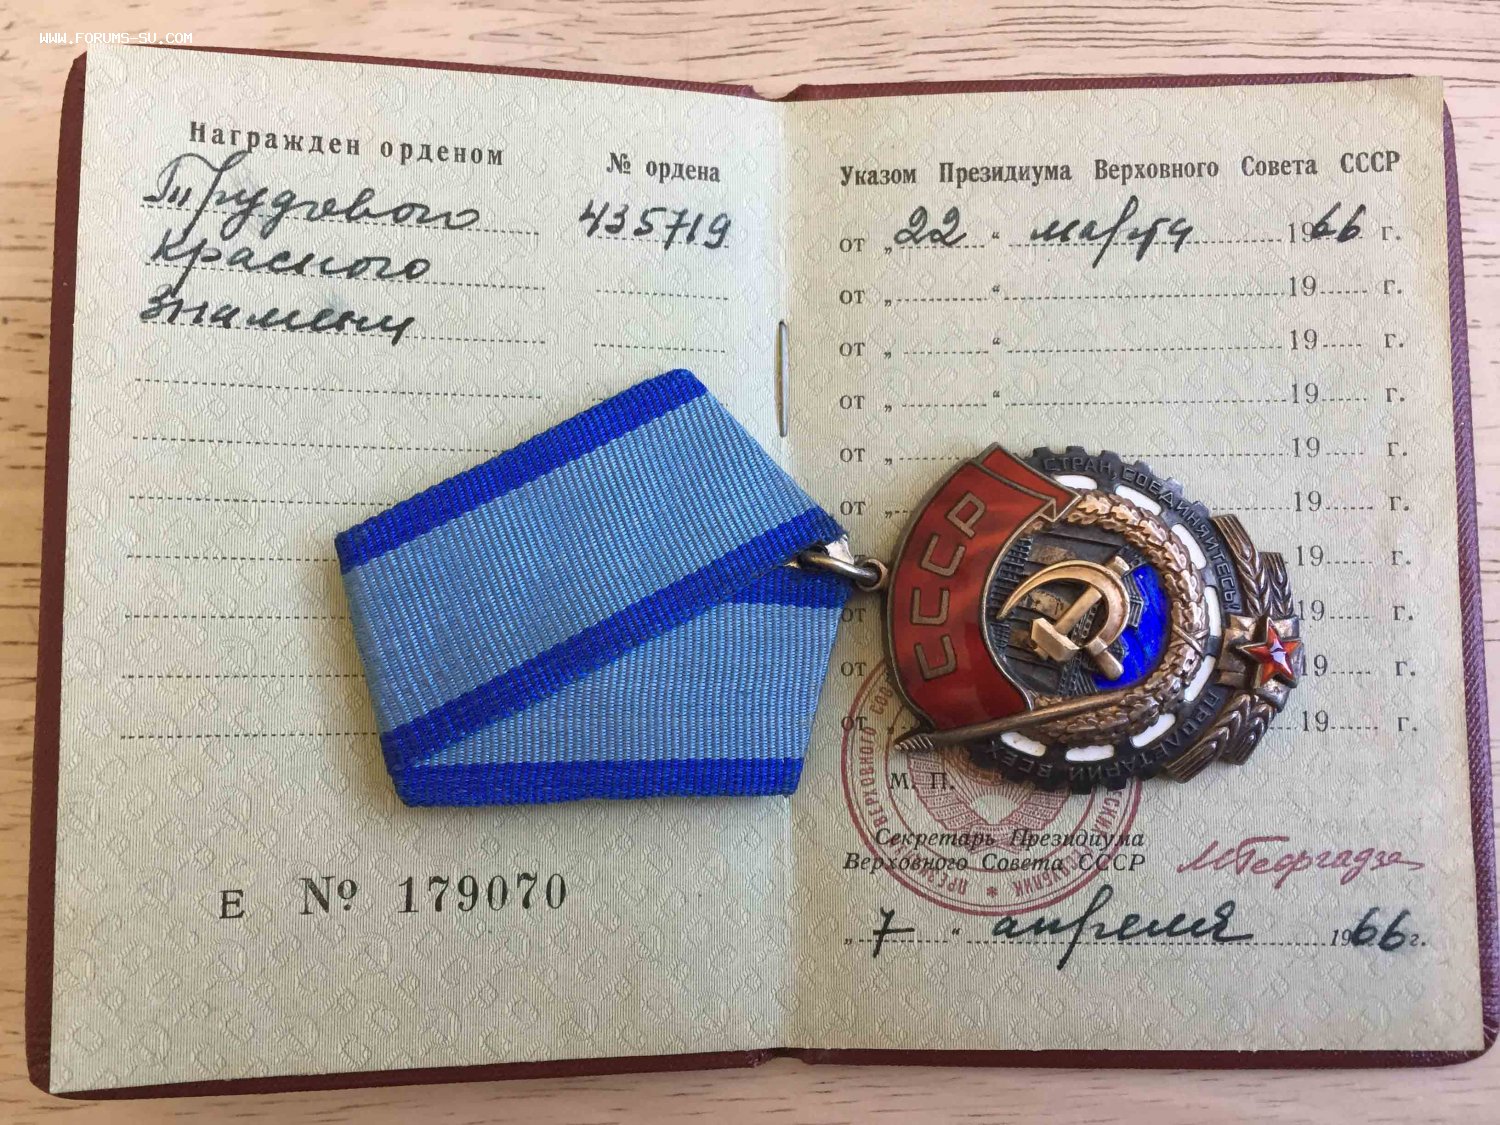 WWW.FORUMS-SU.COM
Награжден орденом
№ ордена
Трудового
435719
Красного
Знамени
Е № 179070
Указом Президиума Верховного Совета СССР
от „22“ марта 1966 г.
от „ “ 19 г.
от „ “ 19 г.
от „ “ 19 г.
от „ 19 г.
от „ 19 г.
19 г.
от 19 г.
от 19 г.
от „ 19 г.
СССР
ПРОЛЕТАРИИ ВСЕХ СТРАН, СОЕДИНЯЙТЕСЬ!
М. П.
Секретарь Президиума
Верховного Совета СССР
МГеоргадзе
„7“ апреля 1966 г.